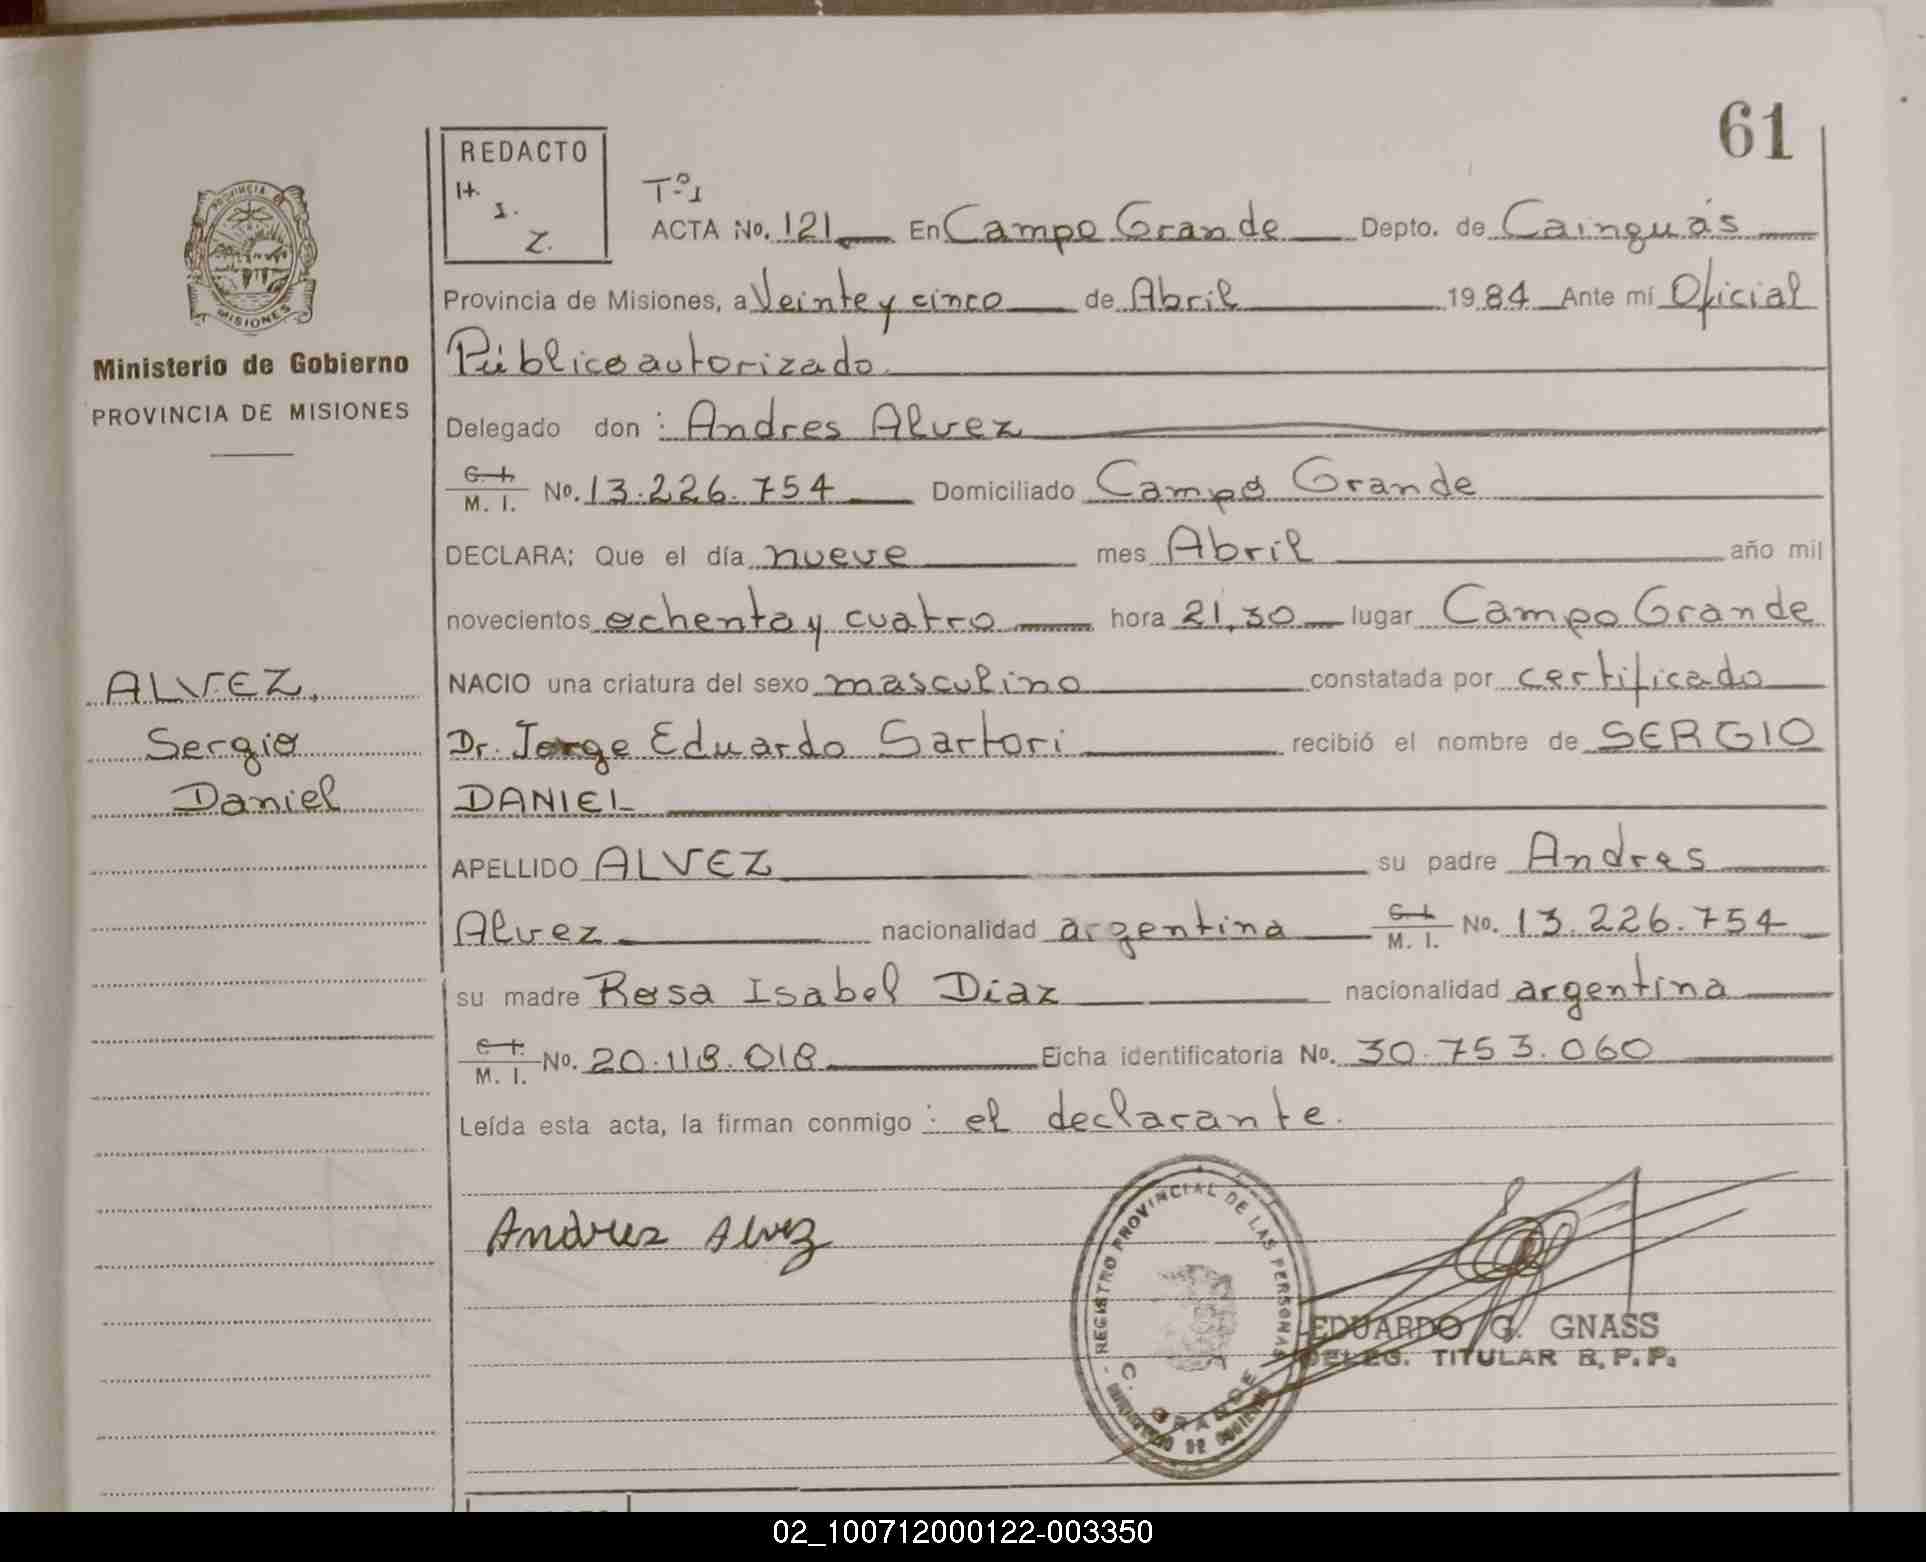 61
REDACTO
H.
I.
Z.
PROVINCIA
MISIONES
Ministerio de Gobierno
PROVINCIA DE MISIONES
Tº1
ACTA No. 121 En Campo Grande Depto. de Cainguás
Provincia de Misiones, a Veinte y cinco de Abril 1984 Ante mí Oficial
Público autorizado
Delegado don : Andres Alvez
C. I. M. I. No. 13.226.754 Domiciliado Campo Grande
DECLARA; Que el día nueve mes Abril año mil
novecientos ochenta y cuatro hora 21,30 lugar Campo Grande
ALVEZ, NACIO una criatura del sexo masculino constatada por certificado
Sergio Dr. Jorge Eduardo Sartori recibió el nombre de SERGIO
Daniel DANIEL
APELLIDO ALVEZ su padre Andres
Alvez nacionalidad argentina C. I. M. I. No. 13.226.754
su madre Rosa Isabel Diaz nacionalidad argentina
C. I. M. I. No. 20.118.018 Ficha identificatoria No. 30.753.060
Leída esta acta, la firman conmigo : el declarante.
Andres Alvez
REGISTRO PROVINCIAL DE LAS PERSONAS
C. GRANDE
MINISTERIO DE GOBIERNO
EDUARDO G. GNASS
DELEG. TITULAR R.P.P.
02_100712000122-003350